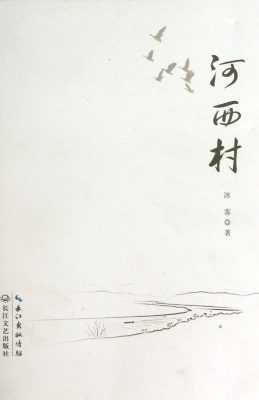 河西村
冰客◎著
长江出版传媒
长江文艺出版社